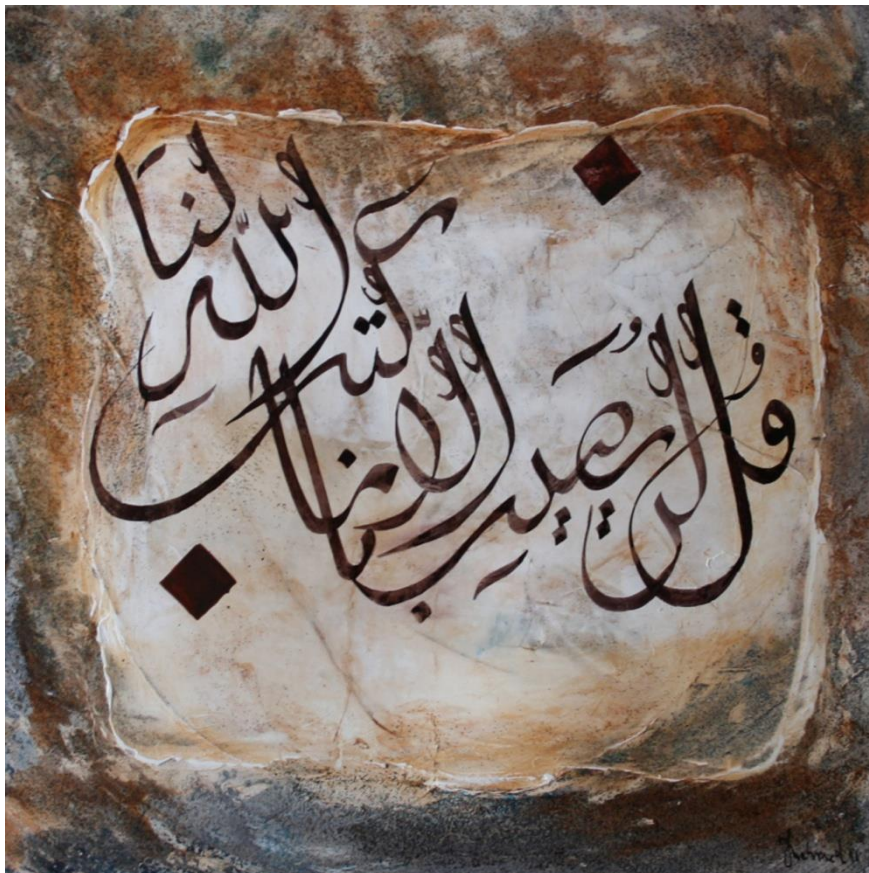 قل لن يصيبنا إلا ما كتب الله لنا